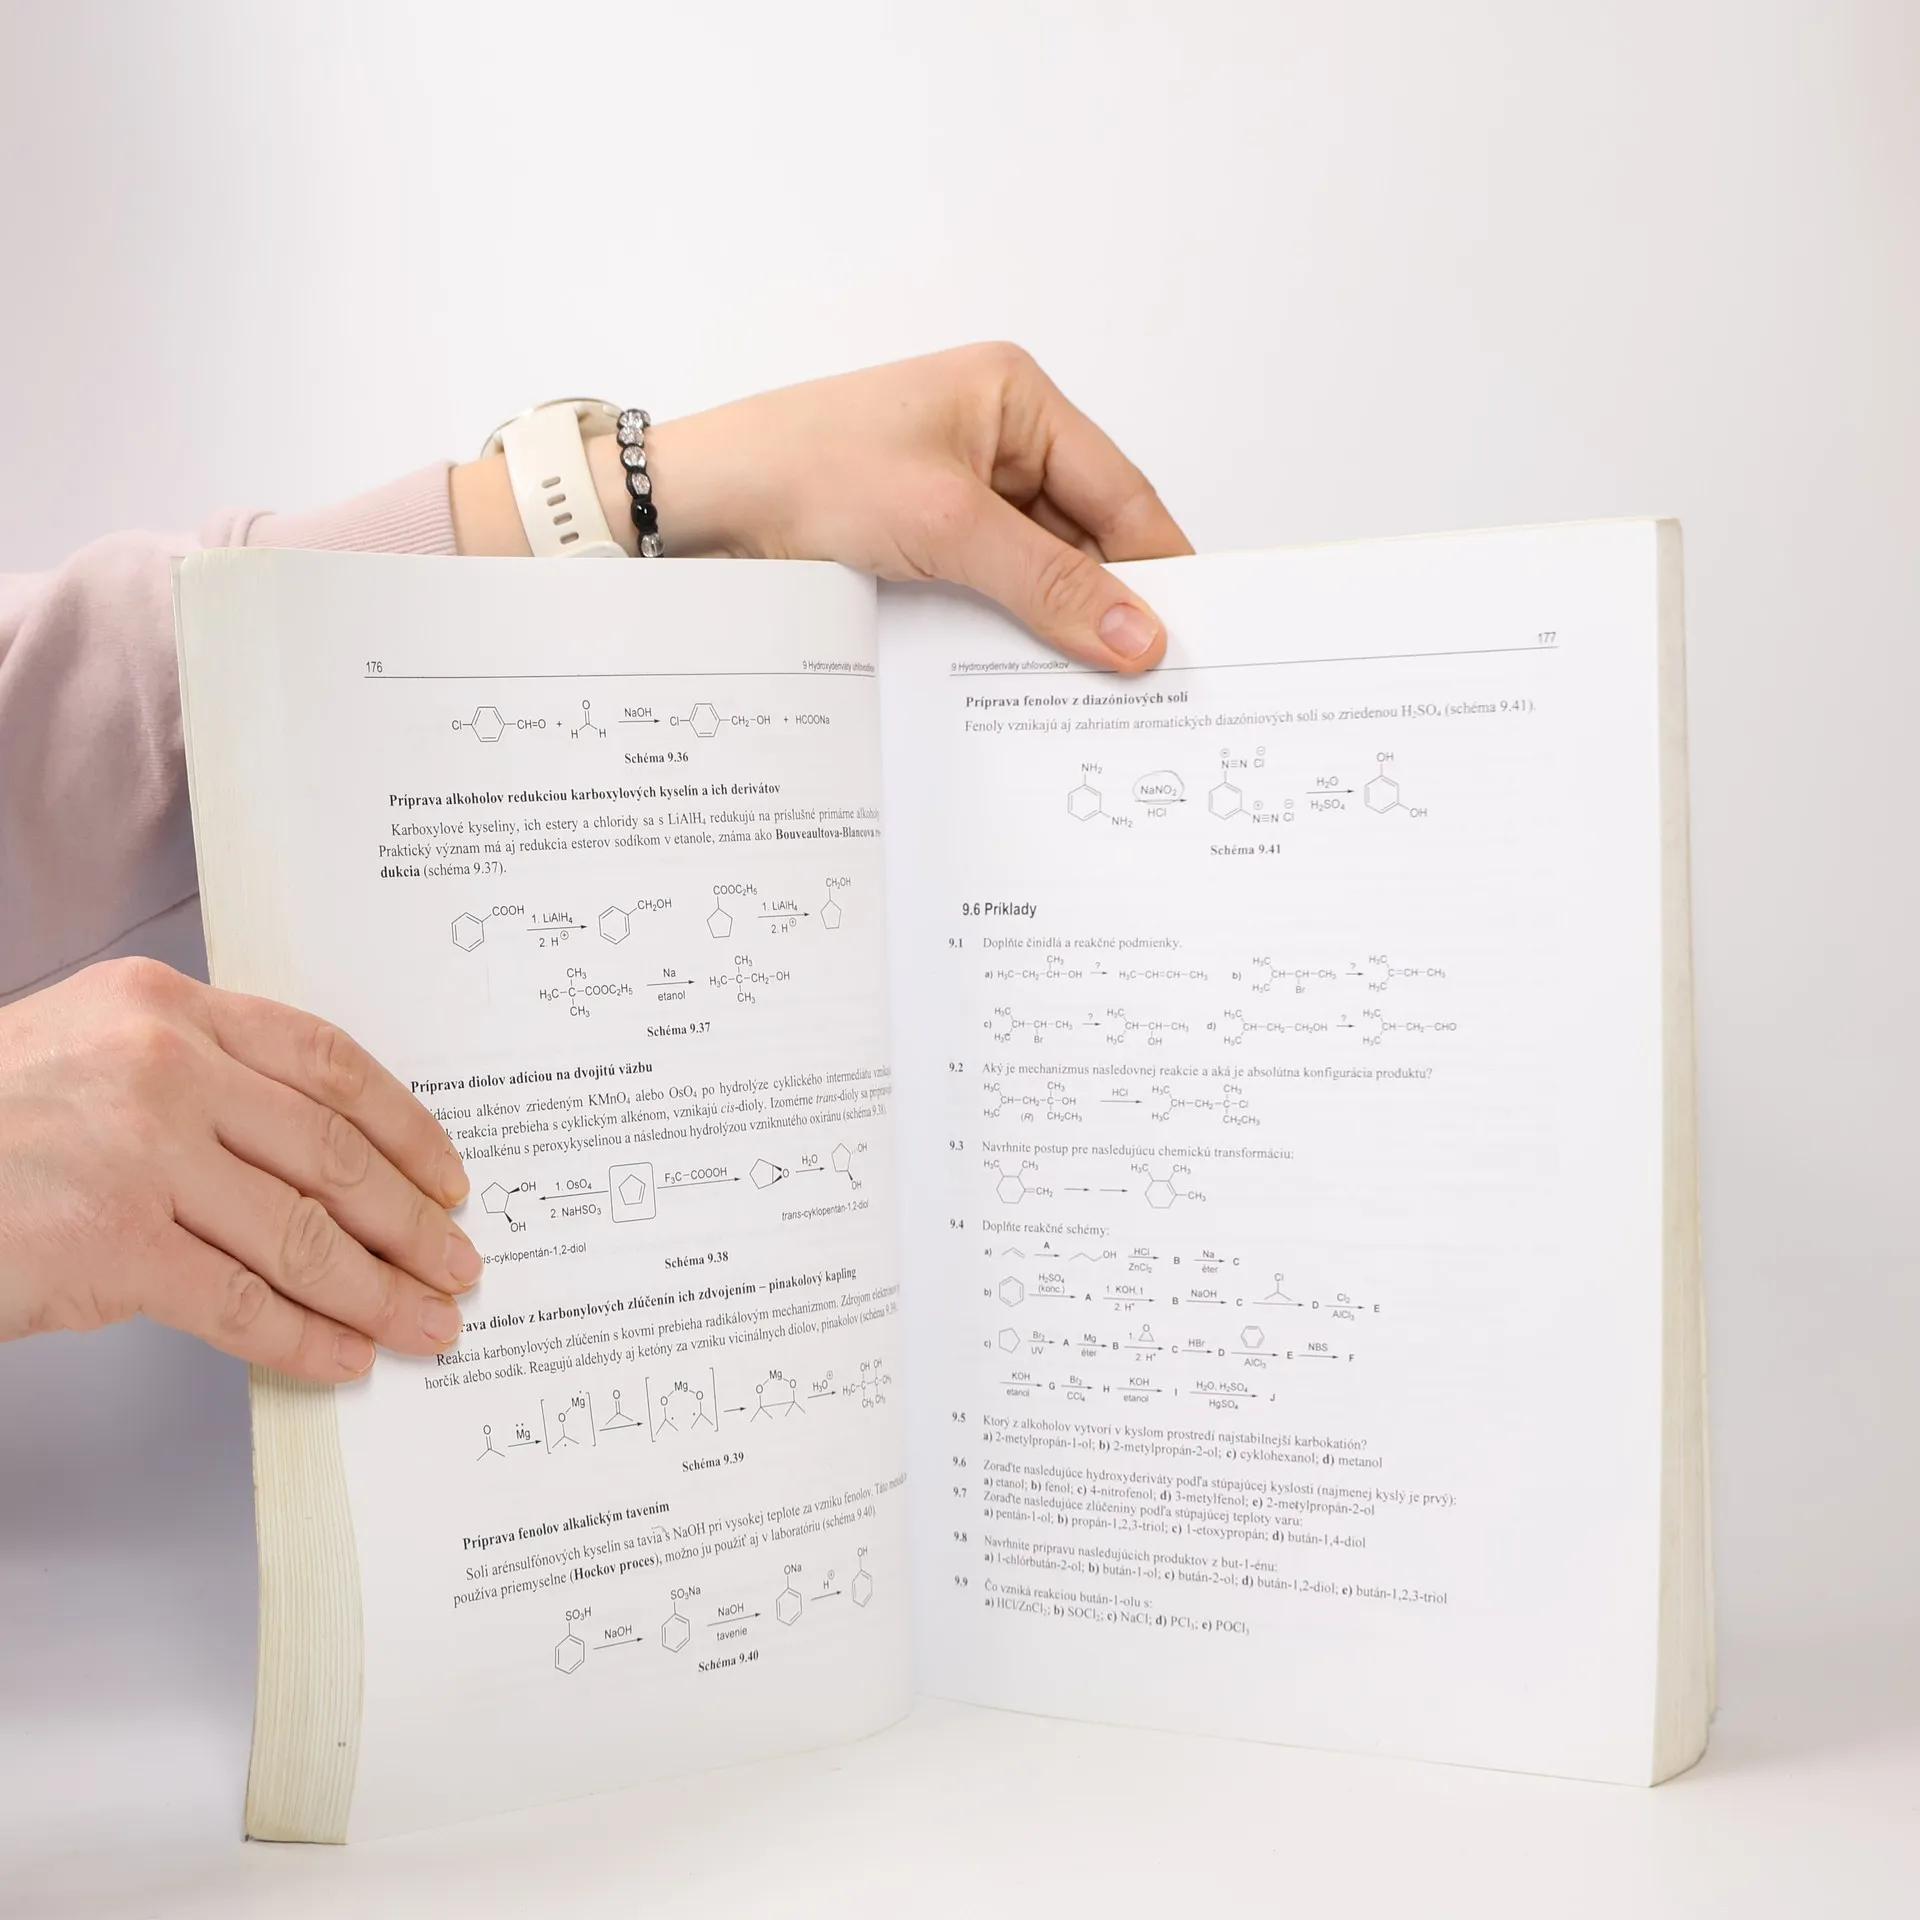 176
9 Hydroxyderiváty
Cl CH=O + O H H NaOH Cl CH₂-OH + HCOONa
Schéma 9.36
Príprava alkoholov redukciou karboxylových kyselín a ich derivátov
Karboxylové kyseliny, ich estery a chloridy sa s LiAlH₄ redukujú na príslušné primárne
Praktický význam má aj redukcia esterov sodíkom v etanole, známa ako Bouveaultova-Blancova
dukcia (schéma 9.37).
COOH 1. LiAlH₄ 2. H⊕ CH₂OH COOC₂H₅ 1. LiAlH₄ 2. H⊕ CH₂OH
CH₃ H₃C-C-COOC₂H₅ CH₃ Na etanol CH₃ H₃C-C-CH₂-OH CH₃
Schéma 9.37
Príprava diolov adíciou na dvojitú väzbu
dáciou alkénov zriedeným KMnO₄ alebo OsO₄ po hydrolýze cyklického intermediátu
k reakcia prebieha s cyklickým alkénom, vznikajú cis-dioly. Izomérne trans-dioly sa
ykloalkénu s peroxykyselinou a následnou hydrolýzou vzniknutého oxiránu (schéma 9.38).
OH OH 1. OsO₄ 2. NaHSO₃ F₃C-COOOH O H₂O OH OH
is-cyklopentán-1,2-diol
trans-cyklopentán-1,2-diol
Schéma 9.38
rava diolov z karbonylových zlúčenín ich zdvojením – pinakolový kapling
Reakcia karbonylových zlúčenín s kovmi prebieha radikálovým mechanizmom. Zdrojom
horčík alebo sodík. Reagujú aldehydy aj ketóny za vzniku vicinálnych diolov, pinakolov (schéma 9.39
O Mg O Mg O O Mg O O Mg O H₃O⊕ OH OH H₃C-C-C-CH₃ CH₃ CH₃
Schéma 9.39
Príprava fenolov alkalickým tavením
Soli arénsulfónových kyselín sa tavia s NaOH pri vysokej teplote za vzniku fenolov. Táto
používa priemyselne (Hockov proces), možno ju použiť aj v laboratóriu (schéma 9.40)
SO₃H NaOH SO₃Na NaOH tavenie ONa H⊕ OH
Schéma 9.40
177
9 Hydroxyderiváty uhľovodíkov
Príprava fenolov z diazóniových solí
Fenoly vznikajú aj zahriatím aromatických diazóniových solí so zriedenou H₂SO₄ (schéma 9.41).
NH₂ NH₂ NaNO₂ HCl N≡N Cl N≡N Cl H₂O H₂SO₄ OH OH
Schéma 9.41
9.6 Príklady
9.1 Doplňte činidlá a reakčné podmienky.
a) H₃C-CH₂-CH-OH CH₃ ? H₃C-CH=CH-CH₃ b) H₃C H₃C CH-CH-CH₃ Br ? H₃C H₃C C=CH-CH₃
c) H₃C H₃C CH-CH-CH₃ Br ? H₃C H₃C CH-CH-CH₃ OH d) H₃C H₃C CH-CH₂-CH₂OH ? H₃C H₃C CH-CH₂-CHO
9.2 Aký je mechanizmus následovnej reakcie a aká je absolútna konfigurácia produktu?
H₃C H₃C CH-CH₂-C-OH CH₃ (R) CH₂CH₃ HCl H₃C H₃C CH-CH₂-C-Cl CH₃ CH₂CH₃
9.3 Navrhnite postup pre nasledujúcu chemickú transformáciu:
H₃C CH₃ =CH₂ H₃C CH₃ CH₃
9.4 Doplňte reakčné schémy:
a) A OH HCl ZnCl₂ B Na éter C
b) H₂SO₄ (konc.) A 1. KOH, t 2. H⁺ B NaOH C Cl D Cl₂ AlCl₃ E
c) Br₂ UV A Mg éter B 1. O 2. H⁺ C HBr D AlCl₃ E NBS F
KOH etanol G Br₂ CCl₄ H KOH etanol I H₂O, H₂SO₄ HgSO₄ J
9.5 Ktorý z alkoholov vytvorí v kyslom prostredí najstabilnejší karbokatión?
a) 2-metylpropán-1-ol; b) 2-metylpropán-2-ol; c) cyklohexanol; d) metanol
9.6 Zoraďte nasledujúce hydroxyderiváty podľa stúpajúcej kyslosti (najmenej kyslý je prvý):
a) etanol; b) fenol; c) 4-nitrofenol; d) 3-metylfenol; e) 2-metylpropán-2-ol
9.7 Zoraďte nasledujúce zlúčeniny podľa stúpajúcej teploty varu:
a) pentán-1-ol; b) propán-1,2,3-triol; c) 1-etoxypropán; d) bután-1,4-diol
9.8 Navrhnite prípravu nasledujúcich produktov z but-1-énu:
a) 1-chlórbután-2-ol; b) bután-1-ol; c) bután-2-ol; d) bután-1,2-diol; e) bután-1,2,3-triol
9.9 Čo vzniká reakciou bután-1-olu s:
a) HCl/ZnCl₂; b) SOCl₂; c) NaCl; d) PCl₃; e) POCl₃